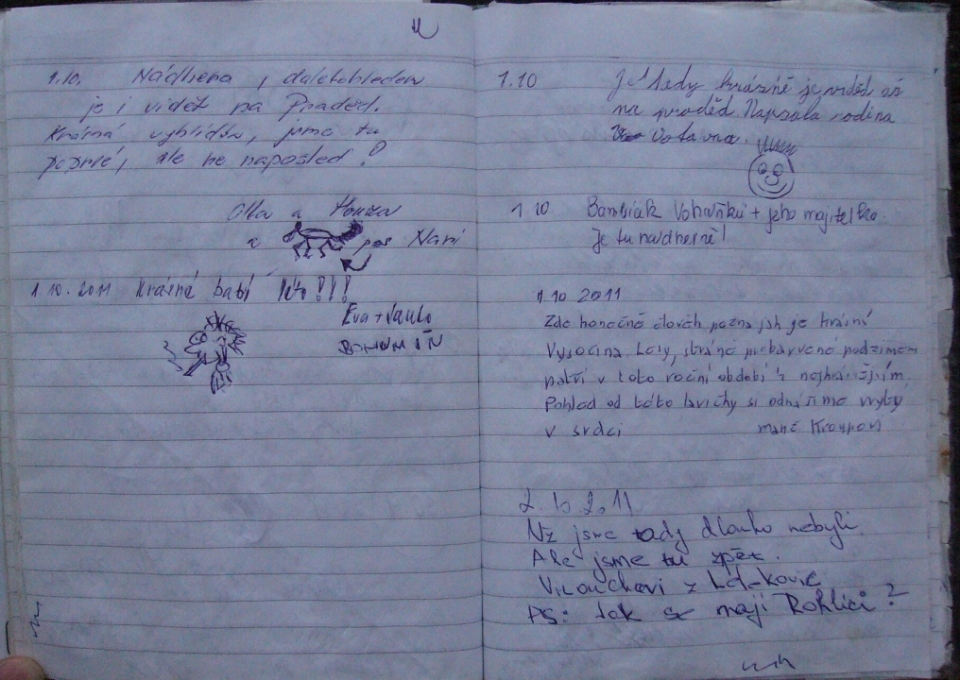 1.10. Nádhera, dalekohledem
je i vidět na Praděd.
Krásná vyhlídka, jsme tu
poprvé, ale ne naposled!
Olla a Honza
a pes Nari
1.10.2011 Krásné babí léto!!!
Eva +
BOHUMÍN
1.10 Je tady krásně je vidět až
na praděd. Napsala rodina
Votavova.
1 10 + jeho majitelka.
Je tu nádherně!
1.10 2011
Zde konečně člověk pozná jak je krásná
Vysočina. Lesy, stráně přebarvené podzimem
patří v toto roční období k nejkrásnějším.
Pohled od této lavičky si odnášíme vryty
v srdci manž. Kroupovi
2.10.2011
Už jsme tady dlouho nebyli.
Ale jsme tu zpět.
z
PS: Jak se mají Rohlíci?